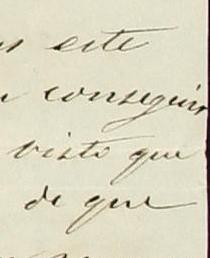 este
conseguir
visto que
de que